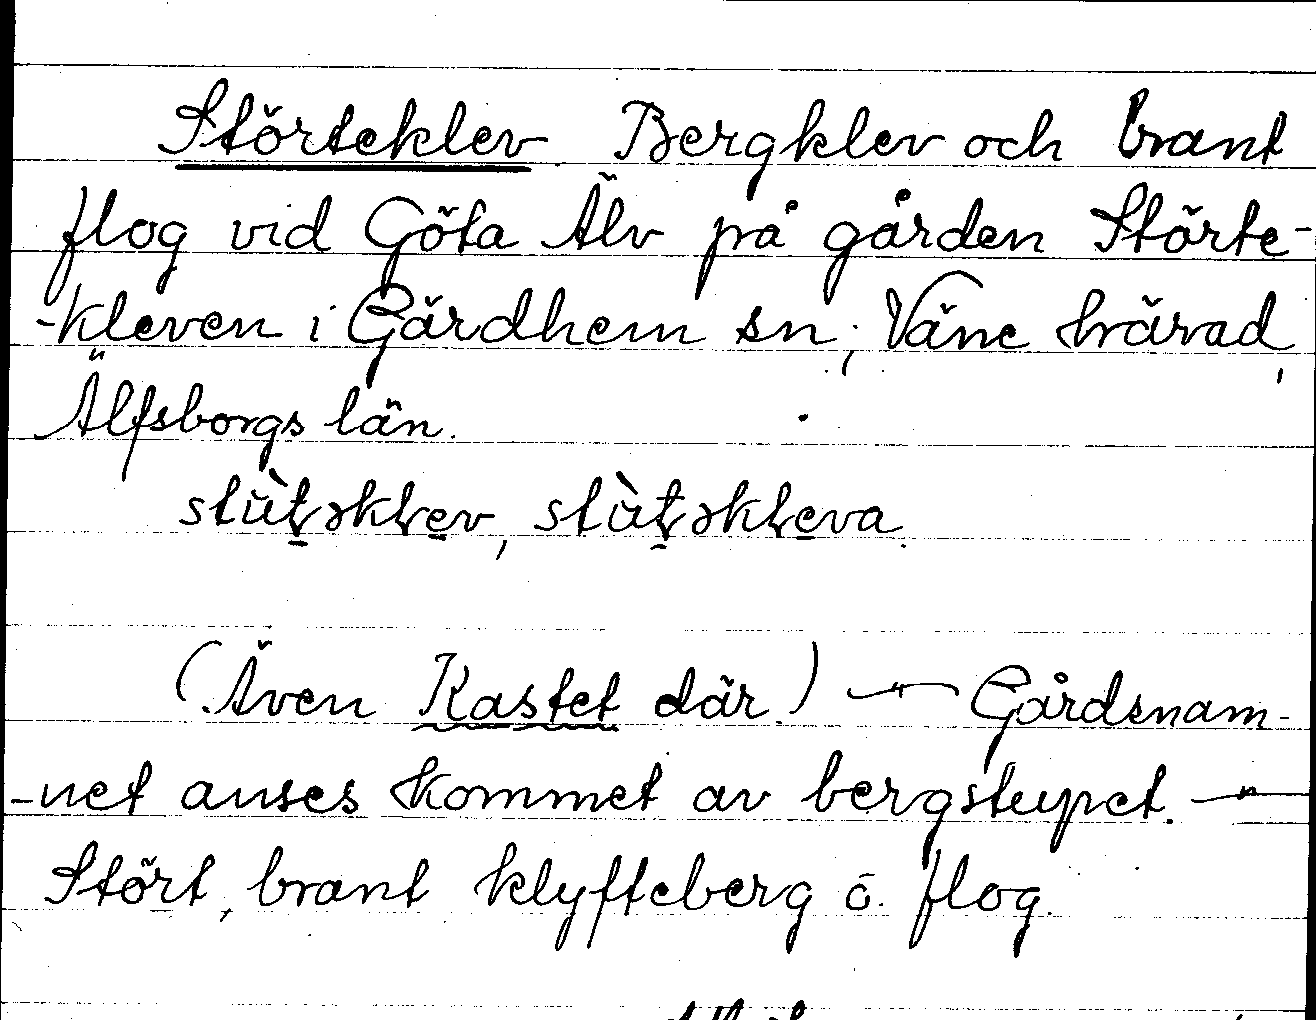 Störteklev. Bergklev och brant
flog vid Göta Älv på gården Störte-
-kleven i Gärdhem sn; Väne härad,
Älfsborgs län.
(Även Kastet där.) — Gårdsnam-
-net anses kommet av bergstupet. —
Stört, brant klyfteberg o. flog.